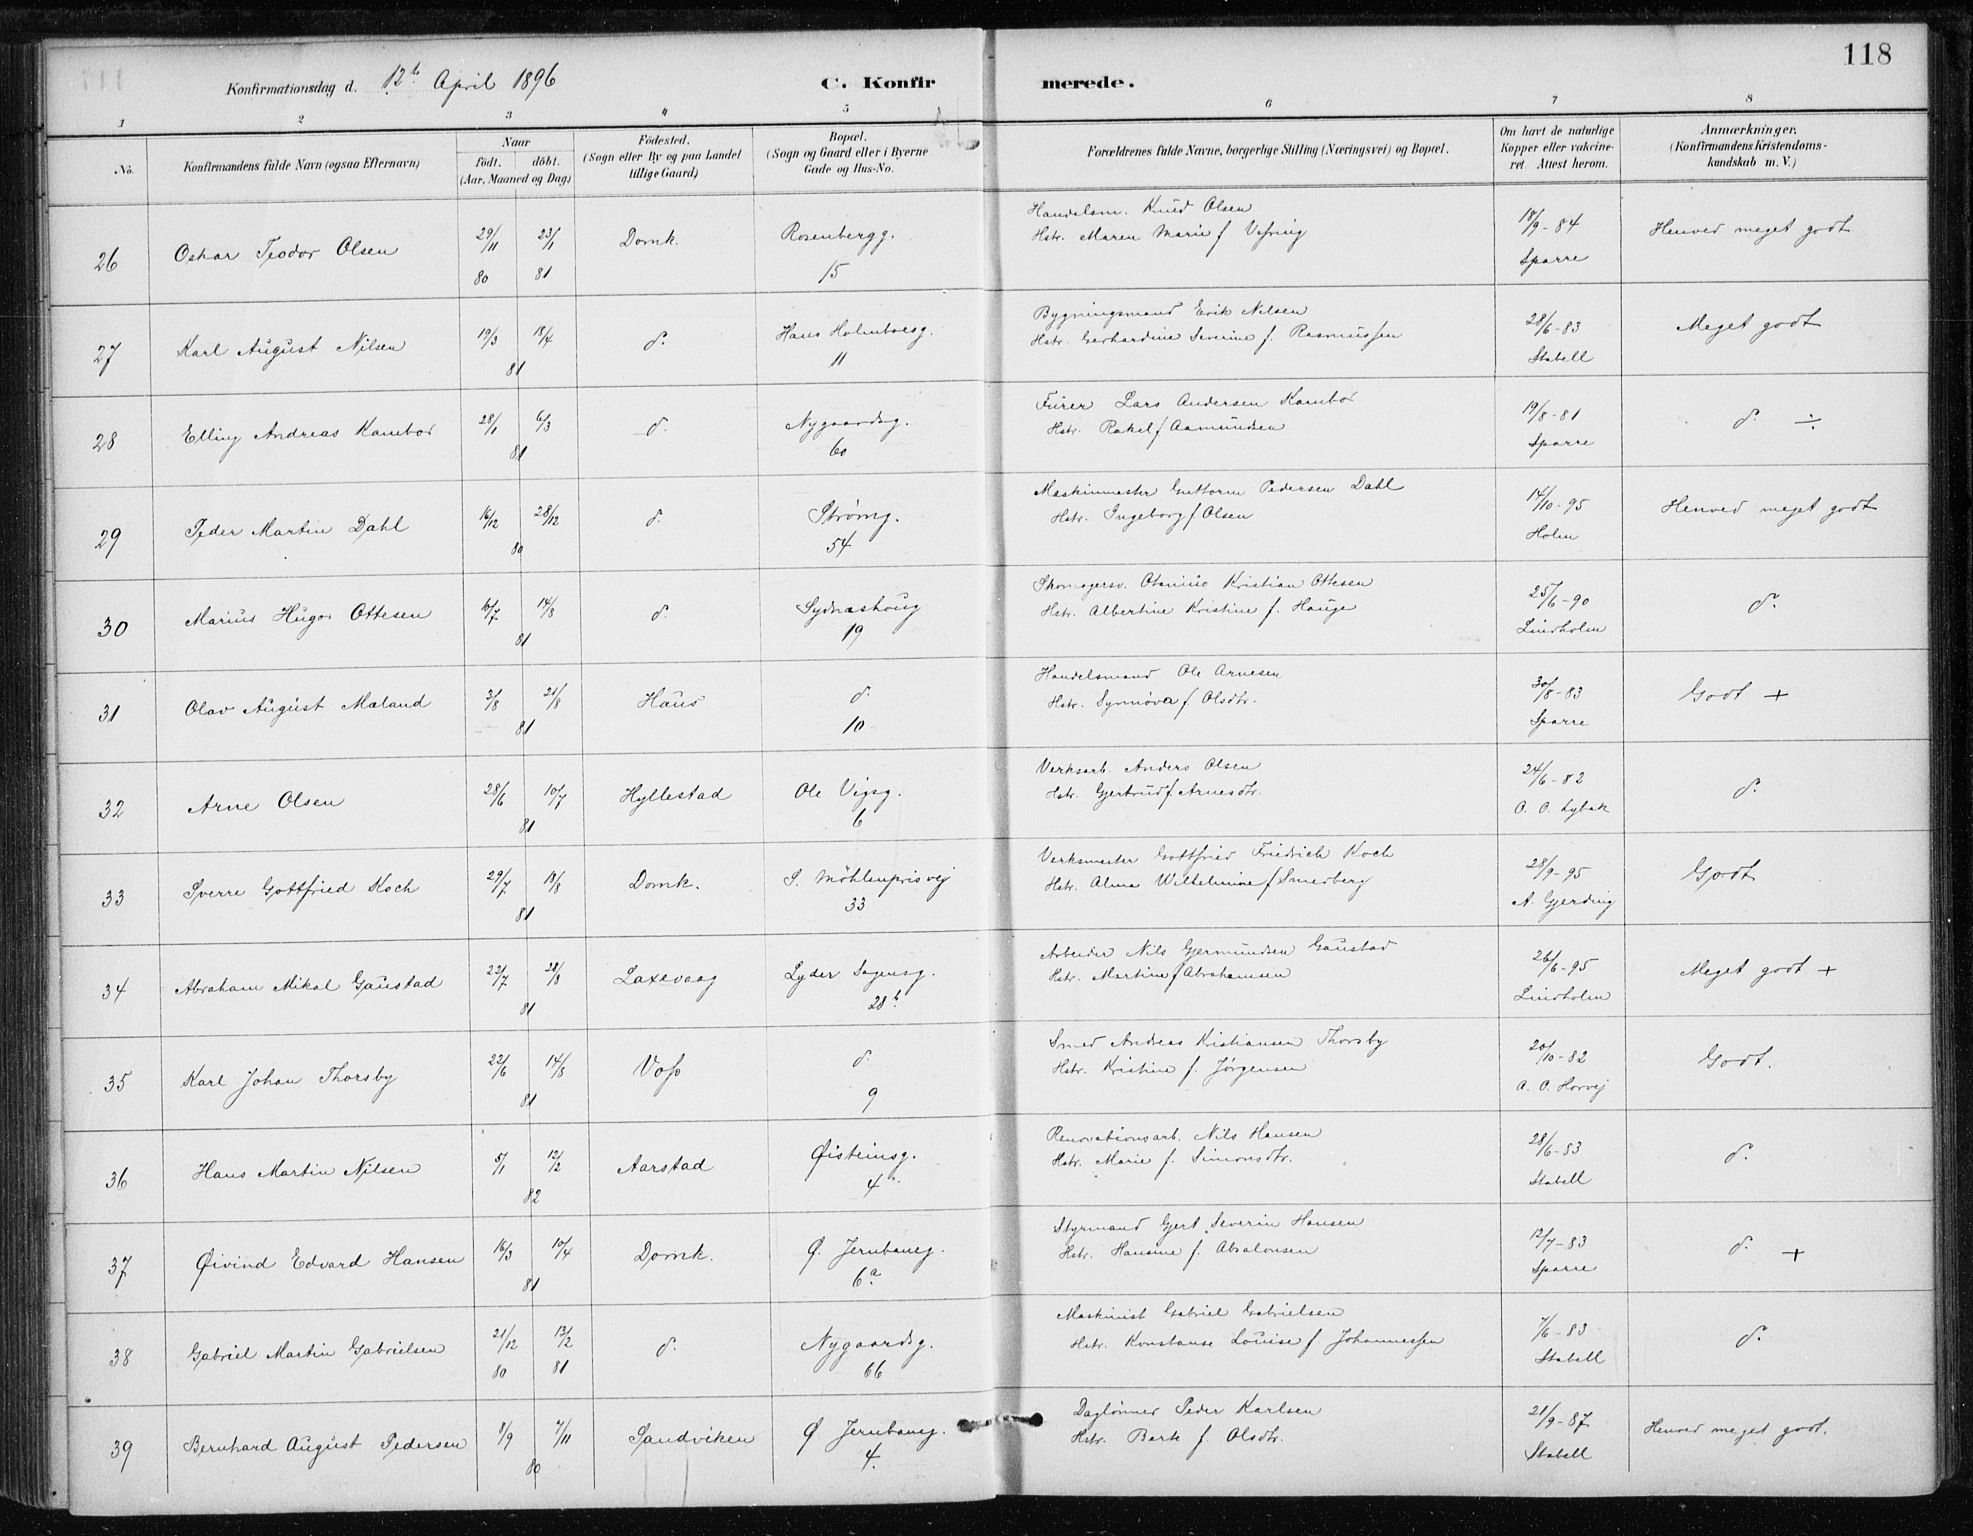 118
Konfirmationsdag d. 12te April 1896
C. Konfirmerede.
1 2 3 4 5 6 7 8
No. Konfirmandens fulde Navn (ogsaa Efternavn) Naar födt. döbt. (Aar, Maaned og Dag) Födested. (Sogn eller By og paa Landet tillige Gaard) Bopæl. (Sogn og Gaard eller i Byerne Gade og Hus-No. Forældrenes fulde Navne, borgerlige Stilling (Næringsvei) og Bopæl. Om havt de naturlige Kopper eller vakcineret Attest herom. Anmærkninger. (Konfirmandens Kristendomskundskab m. V.)
26 Oskar Teodor Olsen 29/11 80 23/1 81 Domk. Rosenbergg. 15 Handelsm. Knud Olsen
Hstr. Maren Marie f Vefring 18/9-84 Sparre Henved meget godt
27 Karl August Nilsen 19/3 18/4 81 d. Hans Holmboesg. 11 Bygningsmand Erik Nilsen
Hstr. Gerhardine Severine f. Rasmussen 28/6-83 Stabell Meget godt
28 Elling Andreas Kambo 28/1 6/3 81 d. Nygaardsg. 60 Fürer Lars Andersen Kambo
Hstr. Rakel f Aamundsen 19/8-81 Sparre d. ÷
29 Peder Martin Dahl 16/12 28/12 80 d. Strømg. 54 Maskinmester Guttorm Pedersen Dahl
Hstr. Ingeborg f Olsen 14/10-95 Holm Henved meget godt
30 Marius Hugo Ottesen 16/7 14/8 81 d. Sydneshoug 19 Skomagersv. Kristian Ottesen
Hstr. Albertine Kristine f. Hauge 25/6-90 Lindholm d.
31 Olav August Mæland 3/8 21/8 81 Haus d 10 Handelsmand Ole Arnesen
Hstr. Synnøva f Olsdtr. 30/8-83 Sparre Godt +
32 Arne Olsen 28/6 10/7 81 Hyllestad Ole Vigsg. 6 Verksarb. Anders Olsen
Hstr. Gjertrud f Arnesdtr. 24/6-82 O. O. Lybæk d.
33 Sverre Gottfried Koch 29/7 18/8 81 Domk. S. Möhlenprisvej 33 Verksmester Gottfried Friedrich Koch
Hstr. Alma Wilhelmine f Smedberg 28/9-95 A. Gjerding Godt
34 Abraham Mikal Gaustad 22/7 28/8 81 Laxevaag Lyder Sagensg. 28b Arbeider Nils Gjermundsen Gaustad
Hstr. Martine f Abrahamsen 26/6-95 Lindholm Meget godt +
35 Karl Johan Thorsby 22/6 14/8 81 Voss d 9 Smed Andreas Kristiansen Thorsby
Hstr. Kristine f. Jørgensen 20/10-82 Godt.
36 Hans Martin Nilsen 5/1 12/2 82 Aarstad Øisteinsg. 4 Renovationsarb. Nils Hansen
Hstr. Marie f. Simonsdtr. 28/6-83 Stabell d.
37 Øivind Edvard Hansen 16/3 10/4 81 Domk. Ø. Jernbaneg. 6a Styrmand Gjert Severin Hansen
Hstr. Hansine f. Absalonsen 12/7-83 Sparre d. +
38 Gabriel Martin Gabrielsen 21/12 80 13/2 81 d. Nygaardsg. 66 Maskinist Gabriel Gabrielsen
Hstr. Konstanse Louise f Johannessen 7/6-83 Stabell d.
39 Bernhard August Pedersen 8/9 7/11 80 Sandviken Ø Jernbaneg. 4. Daglønner Peder Karlsen
Hstr. Berte f. Olsdtr. 21/9-87 Stabell Henved meget godt.